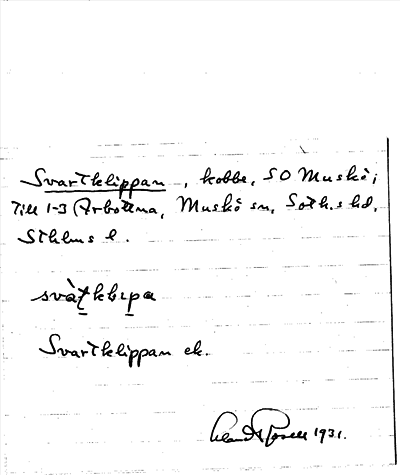 Svartklippan, kobbe, SO Muskö;
Till 1-3 Arbottna, Muskö sn, Soth.s hd,
Sthlms l.
svàtklɩpa
Svartklippan ek.
1931.